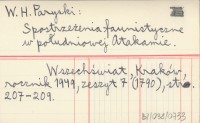 W. H. Paryski:
Spostrzeżenia faunistyczne
w południowej Atakamie.
Wszechświat, Kraków,
rocznik 1949, zeszyt 7 (1790), str.
207-209.